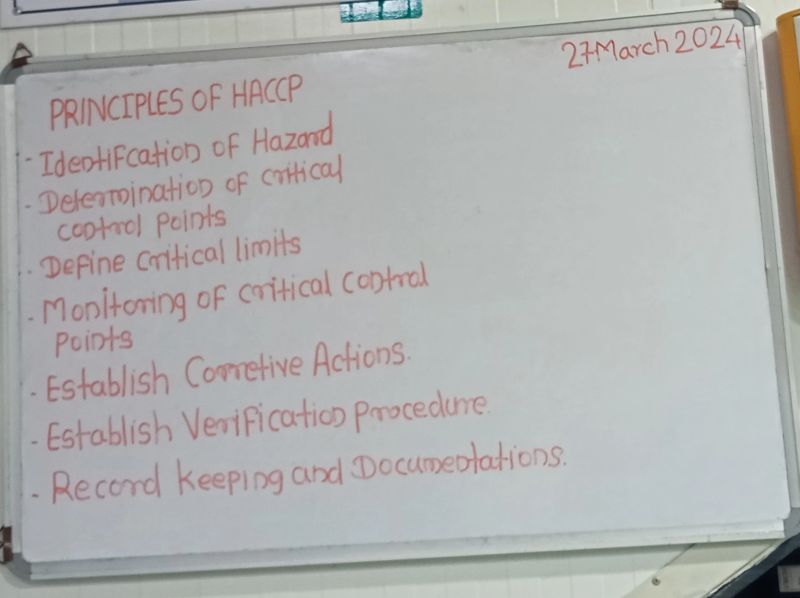 27 March 2024
PRINCIPLES OF HACCP
- Identifcation of Hazard
- Determination of critical
control points
- Define critical limits
- Monitoring of critical control
Points
- Establish Corretive Actions.
- Establish Verification procedure.
- Record keeping and Documentations.